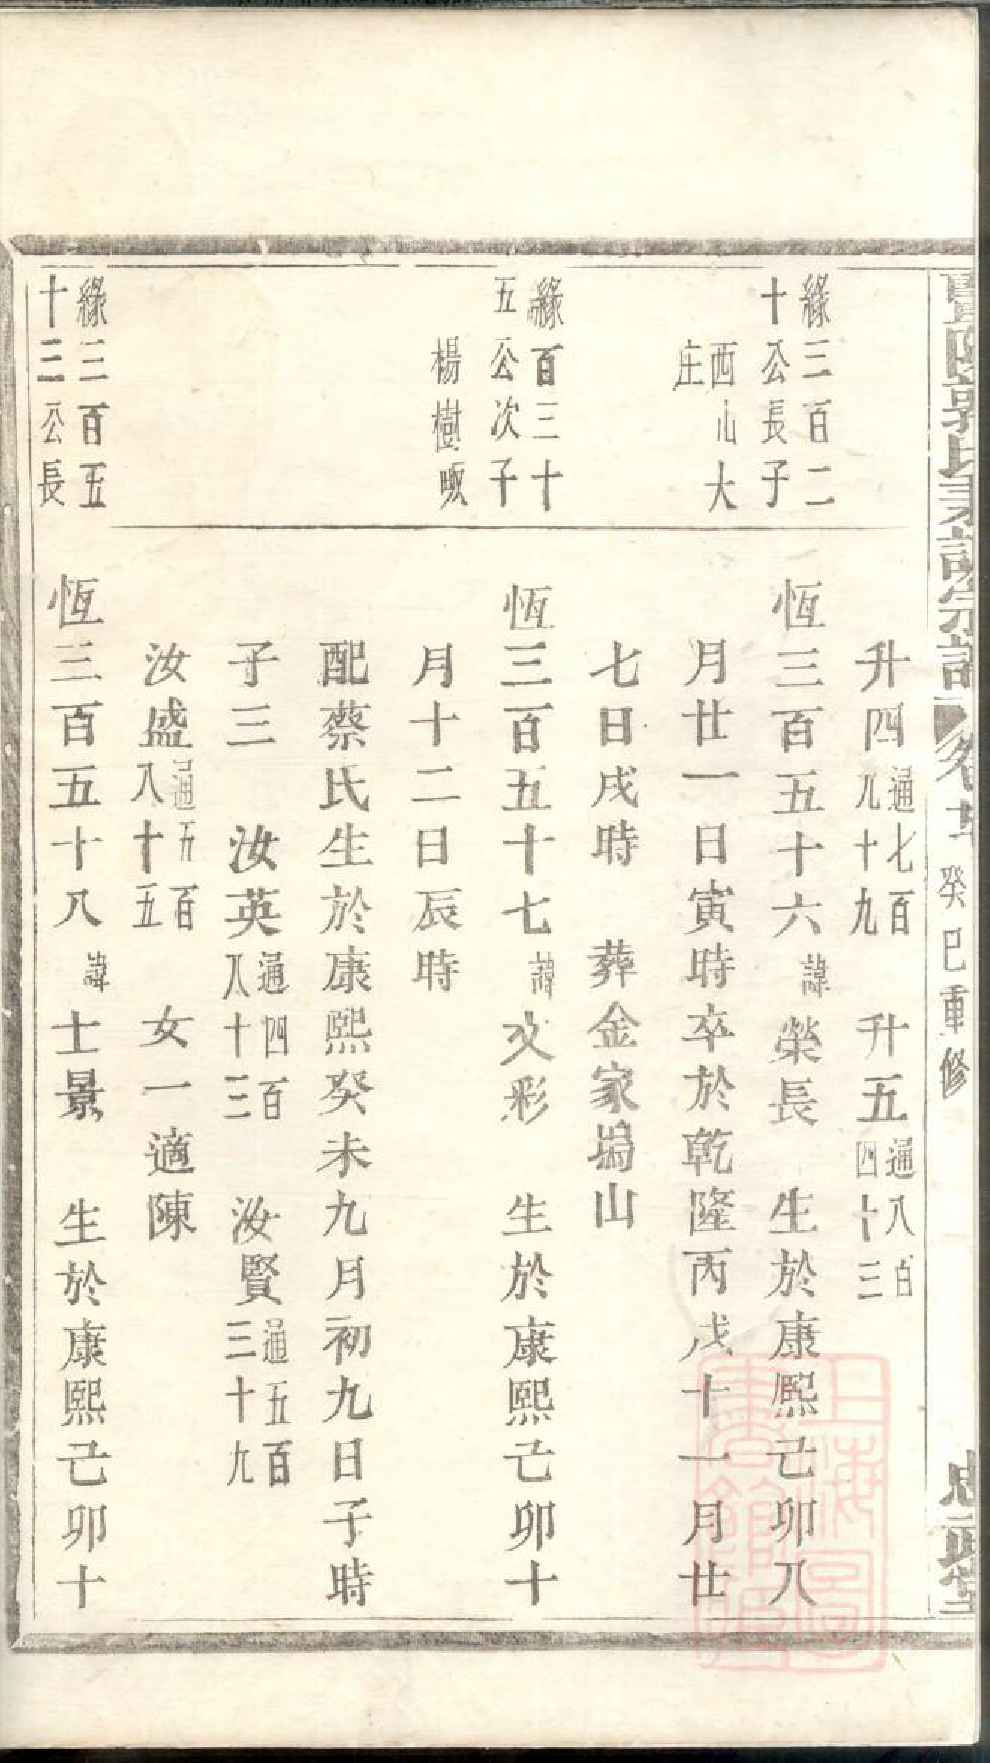 郭氏
宗譜
癸巳重修
升四通七百九十九 升五通八百四十三
緣三百二十公長子
西山大庄
恆三百五十六諱榮長 生於康熙己卯八
月廿一日寅時卒於乾隆丙戌十一月廿
七日戌時 葬金家塢山
緣百三十五公次子
楊樹
恆三百五十七諱文彩 生於康熙己卯十
月十二日辰時
配蔡氏生於康熙癸未九月初九日子時
子三 汝英通四百八十三 汝賢通五百三十九
汝盛通五百八十五 女一適陳
緣三百五十三公長
恆三百五十八諱士景 生於康熙己卯十
上海圖書館藏